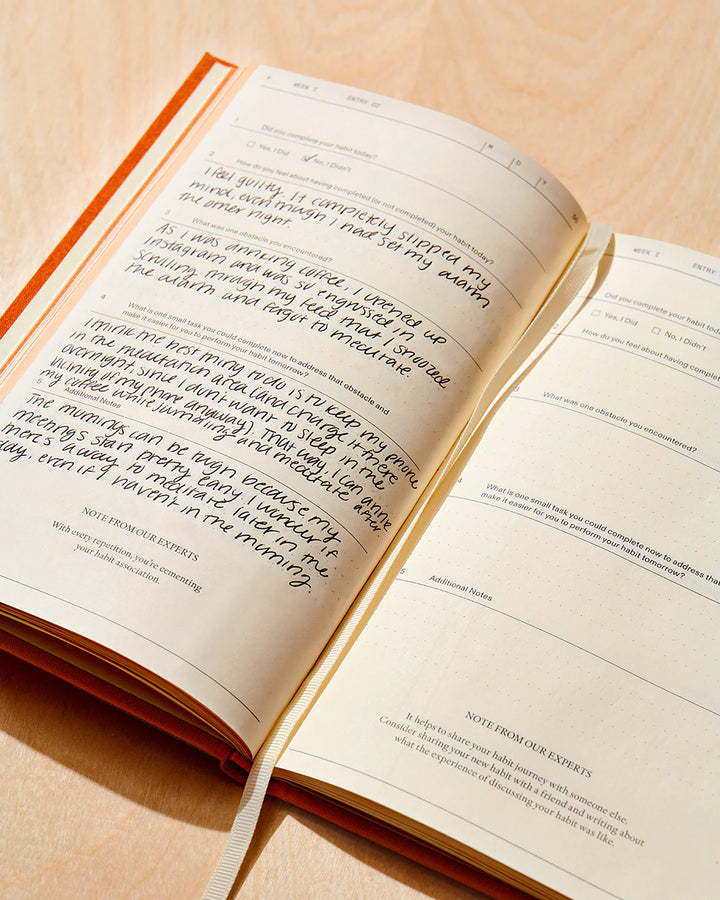 WEEK I ENTRY 02
M D Y S
1 Did you complete your habit today?
Yes, I Did No, I Didn't
2 How do you feel about having completed (or not completed) your habit today?
I feel guilty. It completely slipped my
mind, even though I had set my alarm
the other night.
3 What was one obstacle you encountered?
As I was drinking coffee, I opened up
Instagram and was so engrossed in up
scrolling through my feed that I snoozed
the alarm and forgot to meditate.
4 What is one small task you could complete now to address that obstacle and
make it easier for you to perform your habit tomorrow?
I think the best thing to do is to keep my phone
in the meditation area (and charge it there
overnight, since I don't want to sleep in the
vicinity of my phone anyway). That way I can drink
my coffee while journaling and meditate after.
5 Additional Notes
The mornings can be rough because my
meetings start pretty early. I wonder if
there's a way to meditate later in the
day, even if I haven't in the morning.
NOTE FROM OUR EXPERTS
With every repetition, you're cementing
your habit association.
WEEK I ENTRY
Did you complete your habit today?
Yes, I Did No, I Didn't
2 How do you feel about having completed
3 What was one obstacle you encountered?
4 What is one small task you could complete now to address that
make it easier for you to perform your habit tomorrow?
5 Additional Notes
NOTE FROM OUR EXPERTS
It helps to share your habit journey with someone else.
Consider sharing your new habit with a friend and writing about
what the experience of discussing your habit was like.